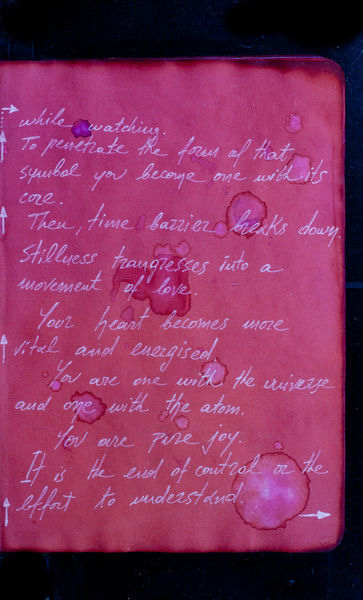 while watching.
To penetrate the form of that
symbol you become one with its
core.
Then, time barrier breaks down.
Stillness trangresses into a
movement of love.
Your heart becomes more
vital and energised.
You are one with the universe
and one with the atom.
You are pure joy.
It is the end of control or the
effort to understand.